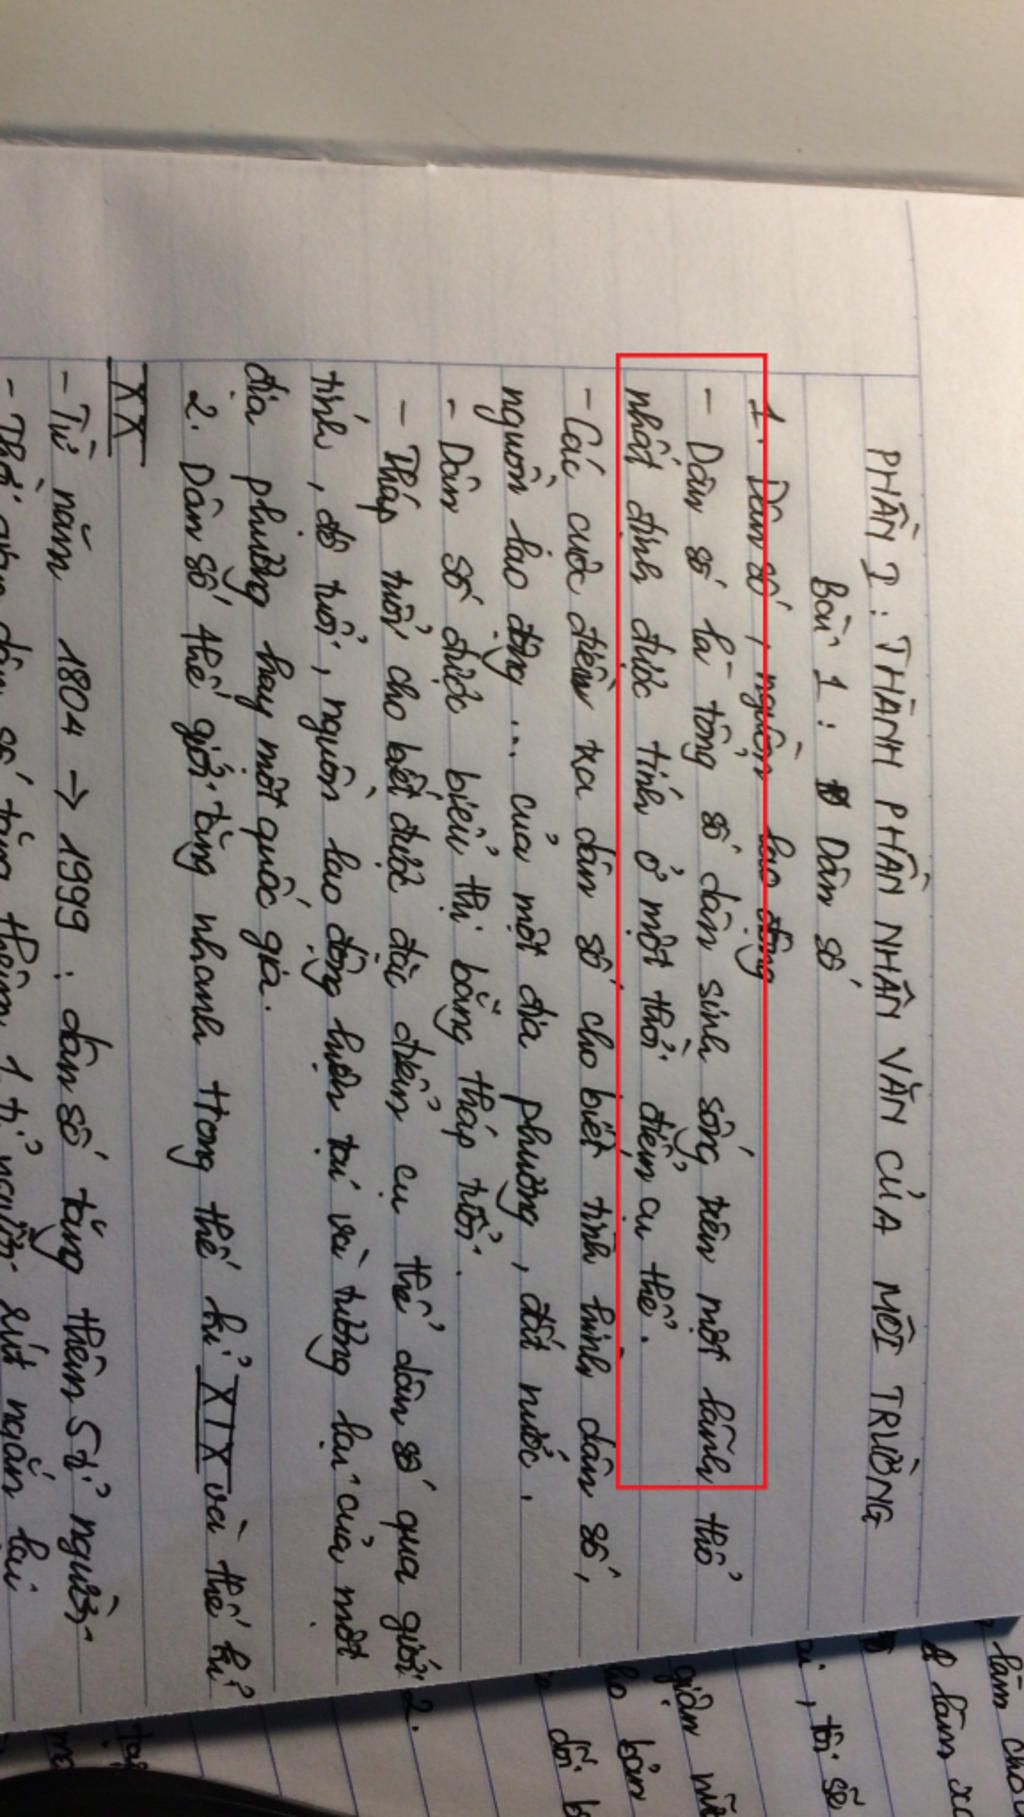 PHẦN I : THÀNH PHẦN NHÂN VĂN CỦA MÔI TRƯỜNG
Bài 1 : Dân số
1. Dân số, nguồn lao động
- Dân số là tổng số dân sinh sống trên một lãnh thổ
nhất định được tính ở một thời điểm cụ thể.
- Các cuộc điều tra dân số cho biết tình hình dân số,
nguồn lao động ... của một địa phương, đất nước.
- Dân số được biểu thị bằng tháp tuổi.
- Tháp tuổi cho biết được đặc điểm cụ thể dân số qua giới
tính, độ tuổi, nguồn lao động hiện tại và tương lai của một
địa phương hay một quốc gia.
2. Dân số thế giới tăng nhanh trong thế kỉ XIX và thế kỉ
XX
- Từ năm 1804 → 1999 : dân số tăng thêm 5 tỉ người.
- Thời gian dân số tăng thêm 1 tỉ người rút ngắn lại
2.
làm cho
làm
tôi sẽ
giận
bản
đôi